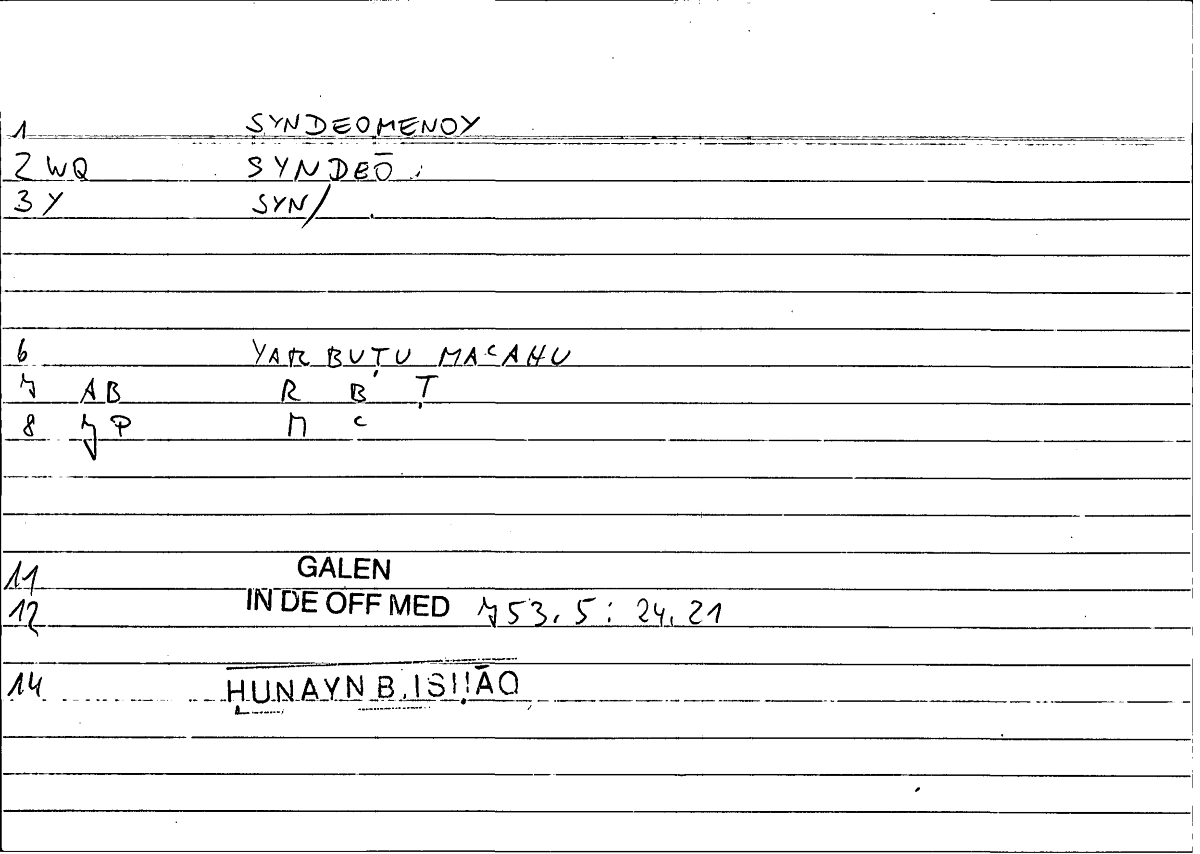 1 SYNDEOMENOY
2 WQ SYNDEŌ
3 Y SYN/
6 YARBUṬU MAʿAHU
7 AB R B Ṭ
8 7P M ʿ
11 GALEN
12 IN DE OFF MED 753,5: 24,21
14 ḤUNAYN B. ISḤĀQ